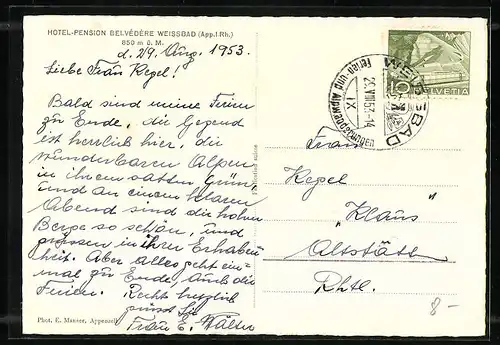 HOTEL-PENSION BELVÉDÈRE WEISSBAD (App.I.Rh.)
850 m ü. M.
d. 29. Aug. 1953.
Liebe Frau Kegel!
Bald sind meine Ferien
zu Ende, die Gegend
ist herrlich hier, die
wunderbaren Alpen
in ihrem satten Grün
und an einem klaren
Abend sind die hohen
Berge so schön, und
grüssen in ihrer Erhaben
heit. Aber alles geht ein-
mal zu Ende, auch die
Ferien. Recht herzlich
grüsst Sie
Frau E. Walter
Phot. E. Manser, Appenzell
WEISSBAD
Ferien- und Alpwanderungsgebiet
29.VIII.53.-14
IX
10
HELVETIA
Frau
Kegel
„Klaus"
Altstätten
Rhtl.
8-